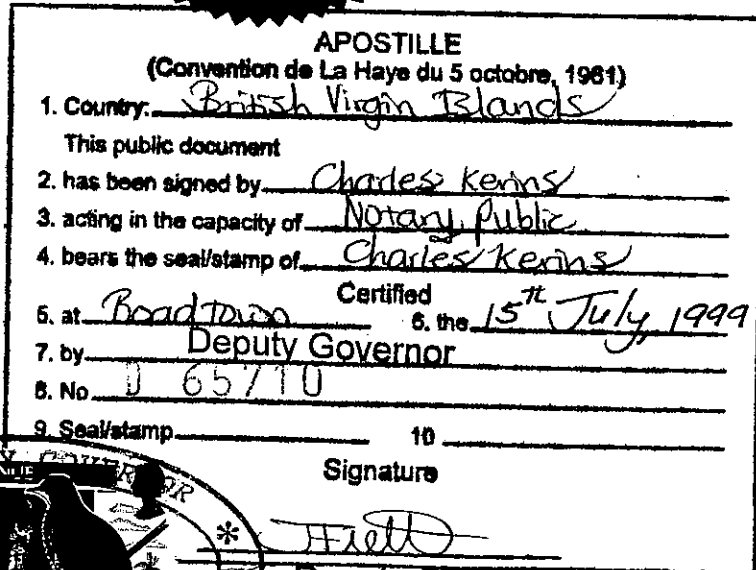 APOSTILLE
(Convention de La Haye du 5 octobre, 1961)
1. Country: British Virgin Islands
This public document
2. has been signed by Charles Kerins
3. acting in the capacity of Notary Public
4. bears the seal/stamp of Charles Kerins
Certified
5. at Road Town 6. the 15th July, 1999
7. by Deputy Governor
8. No D 65710
9. Seal/stamp 10
Signature
GOVERNOR